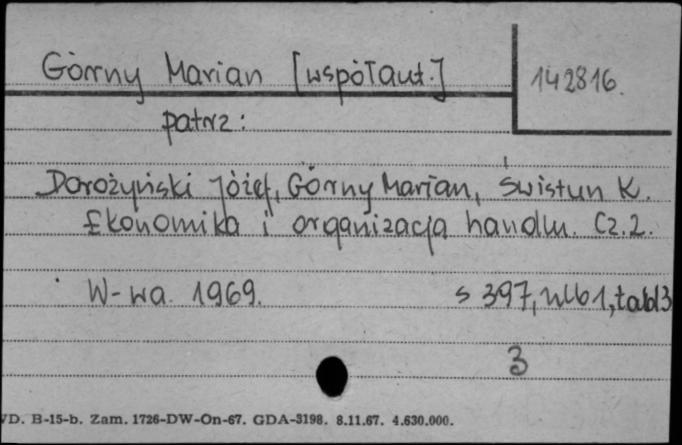 Górny Marian [współaut.]
142816.
patrz:
Dorożyński Józef, Górny Marian, Świstun K.
Ekonomika i organizacja handlu. Cz. 2.
W-wa. 1969.
s 397, nlb 1, tabl 3
3
VD. B-15-b. Zam. 1726-DW-On-67. GDA-3198. 8.11.67. 4.630.000.